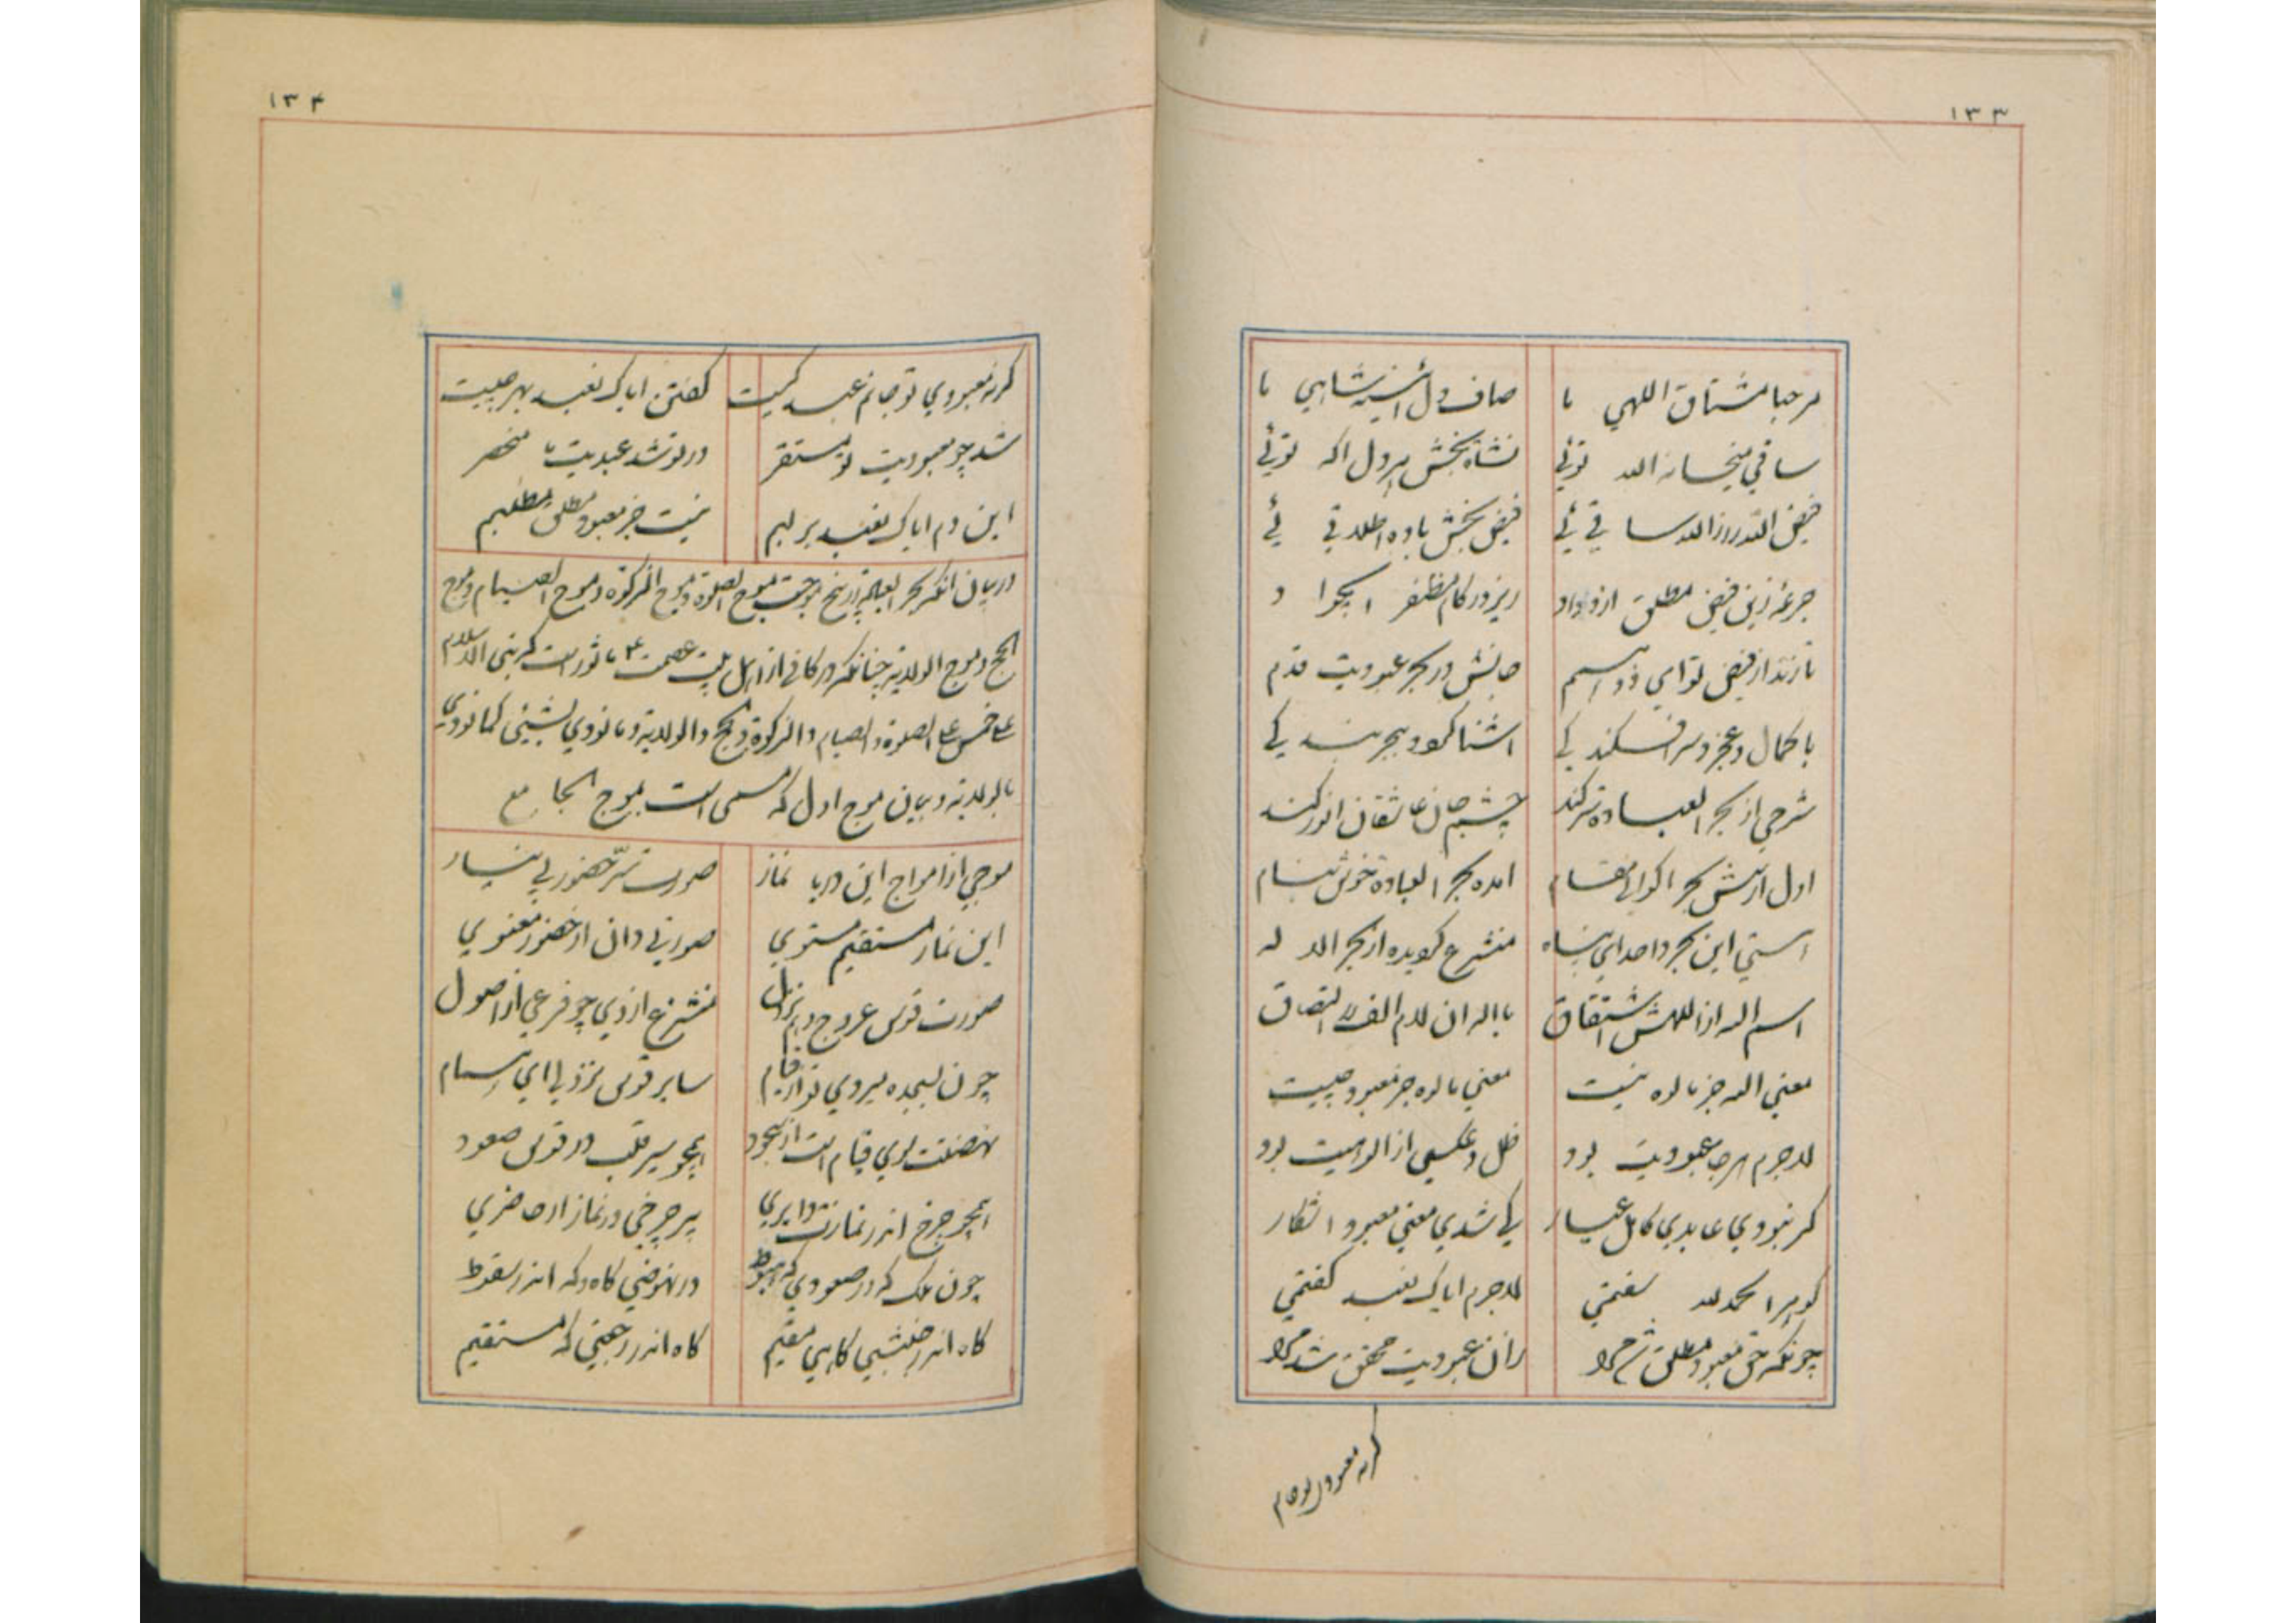 ۱۳۳
مرحبا مشتاق اللهی ما صاف دل آئینه شاهی ما
ساقی میخانه الله توئی نشاه بخش هر دل اکه توئی
فیض الله رازالله ساقی ئی فیض بخش باده اطلاقی ئی
جرعه زین فیض مطلق از وداد ریز در کام مظفر ای جواد
تا زند از فیض تو ای ذو اسم جانش در بحر عبودیت قدم
با کمال و عجز و سرافکندکی اشنا کردد ببحر بندکی
شرحی از بحر العباده تر کند چشم جان عاشقان انور کند
اول ارکش بحر اکرام مقام امده بحر العباده خوش بنام
استی این بحر واحد ای پناه منشرع کردیده از بحر اله
اسم اله از اللهش اشتقاق با اله ان لام الف را التصاق
معنی اله جز مالوه نیست معنی مالوه جز معبود چیست
لاجرم هر جا عبودیت بود ظل و عکسی از الوهیت بود
کر نبودی عابدی کامل عیار کی شدی معنی معبود اشکار
کوهر الحمد لله سفتمی لاجرم ایاک نعبد کفتمی
چونکه حق معبود مطلق شد مرا زان عبودیت محقق شد مرا
کر نه معبودی تو جانم
۱۳۴
کر نه معبودی تو جانم عبد کیست کفتن ایاک نعبد بهر چیست
شد چو معبودیت تو مستقر در تو شد عبدیت ما منحصر
این دم ایاک نعبد بر لبم نیست جز معبود مطلق مطلبم
در بیان انکه بحر العباده را پنج موجست موج الصلوة و موج الزکوة و موج الصیام و موج
الحج و موج الولایة چنانکه در کافی از اهل بیت عصمت ع ماثور است که بنی الاسلام
علی خمس علی الصلوة و الصیام و الزکوة و الحج و الولایة و ما نودی بشیئی کما نودی
بالولایة و بیان موج اول که مسمی است بموج الجامع
موجی از امواج این دریا نماز صورت سر حضور بی نیاز
این نماز مستقیم مستوی صورتی دان از حضور معنوی
صورت قوس عروج و هم نزول منشرع از وی چو فرعی از اصول
چون بسجده میروی تو از قیام سایر قوس نزولی ای همام
نهضتت سوی قیام است از سجود همچو سیر قلب در قوس صعود
همچو چرخ اندر نمازت دایری سر چرخی در نماز ار حاضری
چون ملک که در صعودی که هبوط در نهوضی کاه و که اندر سقوط
کاه اندر جنبشی کاهی مقیم کاه اندر رجعتی که مستقیم